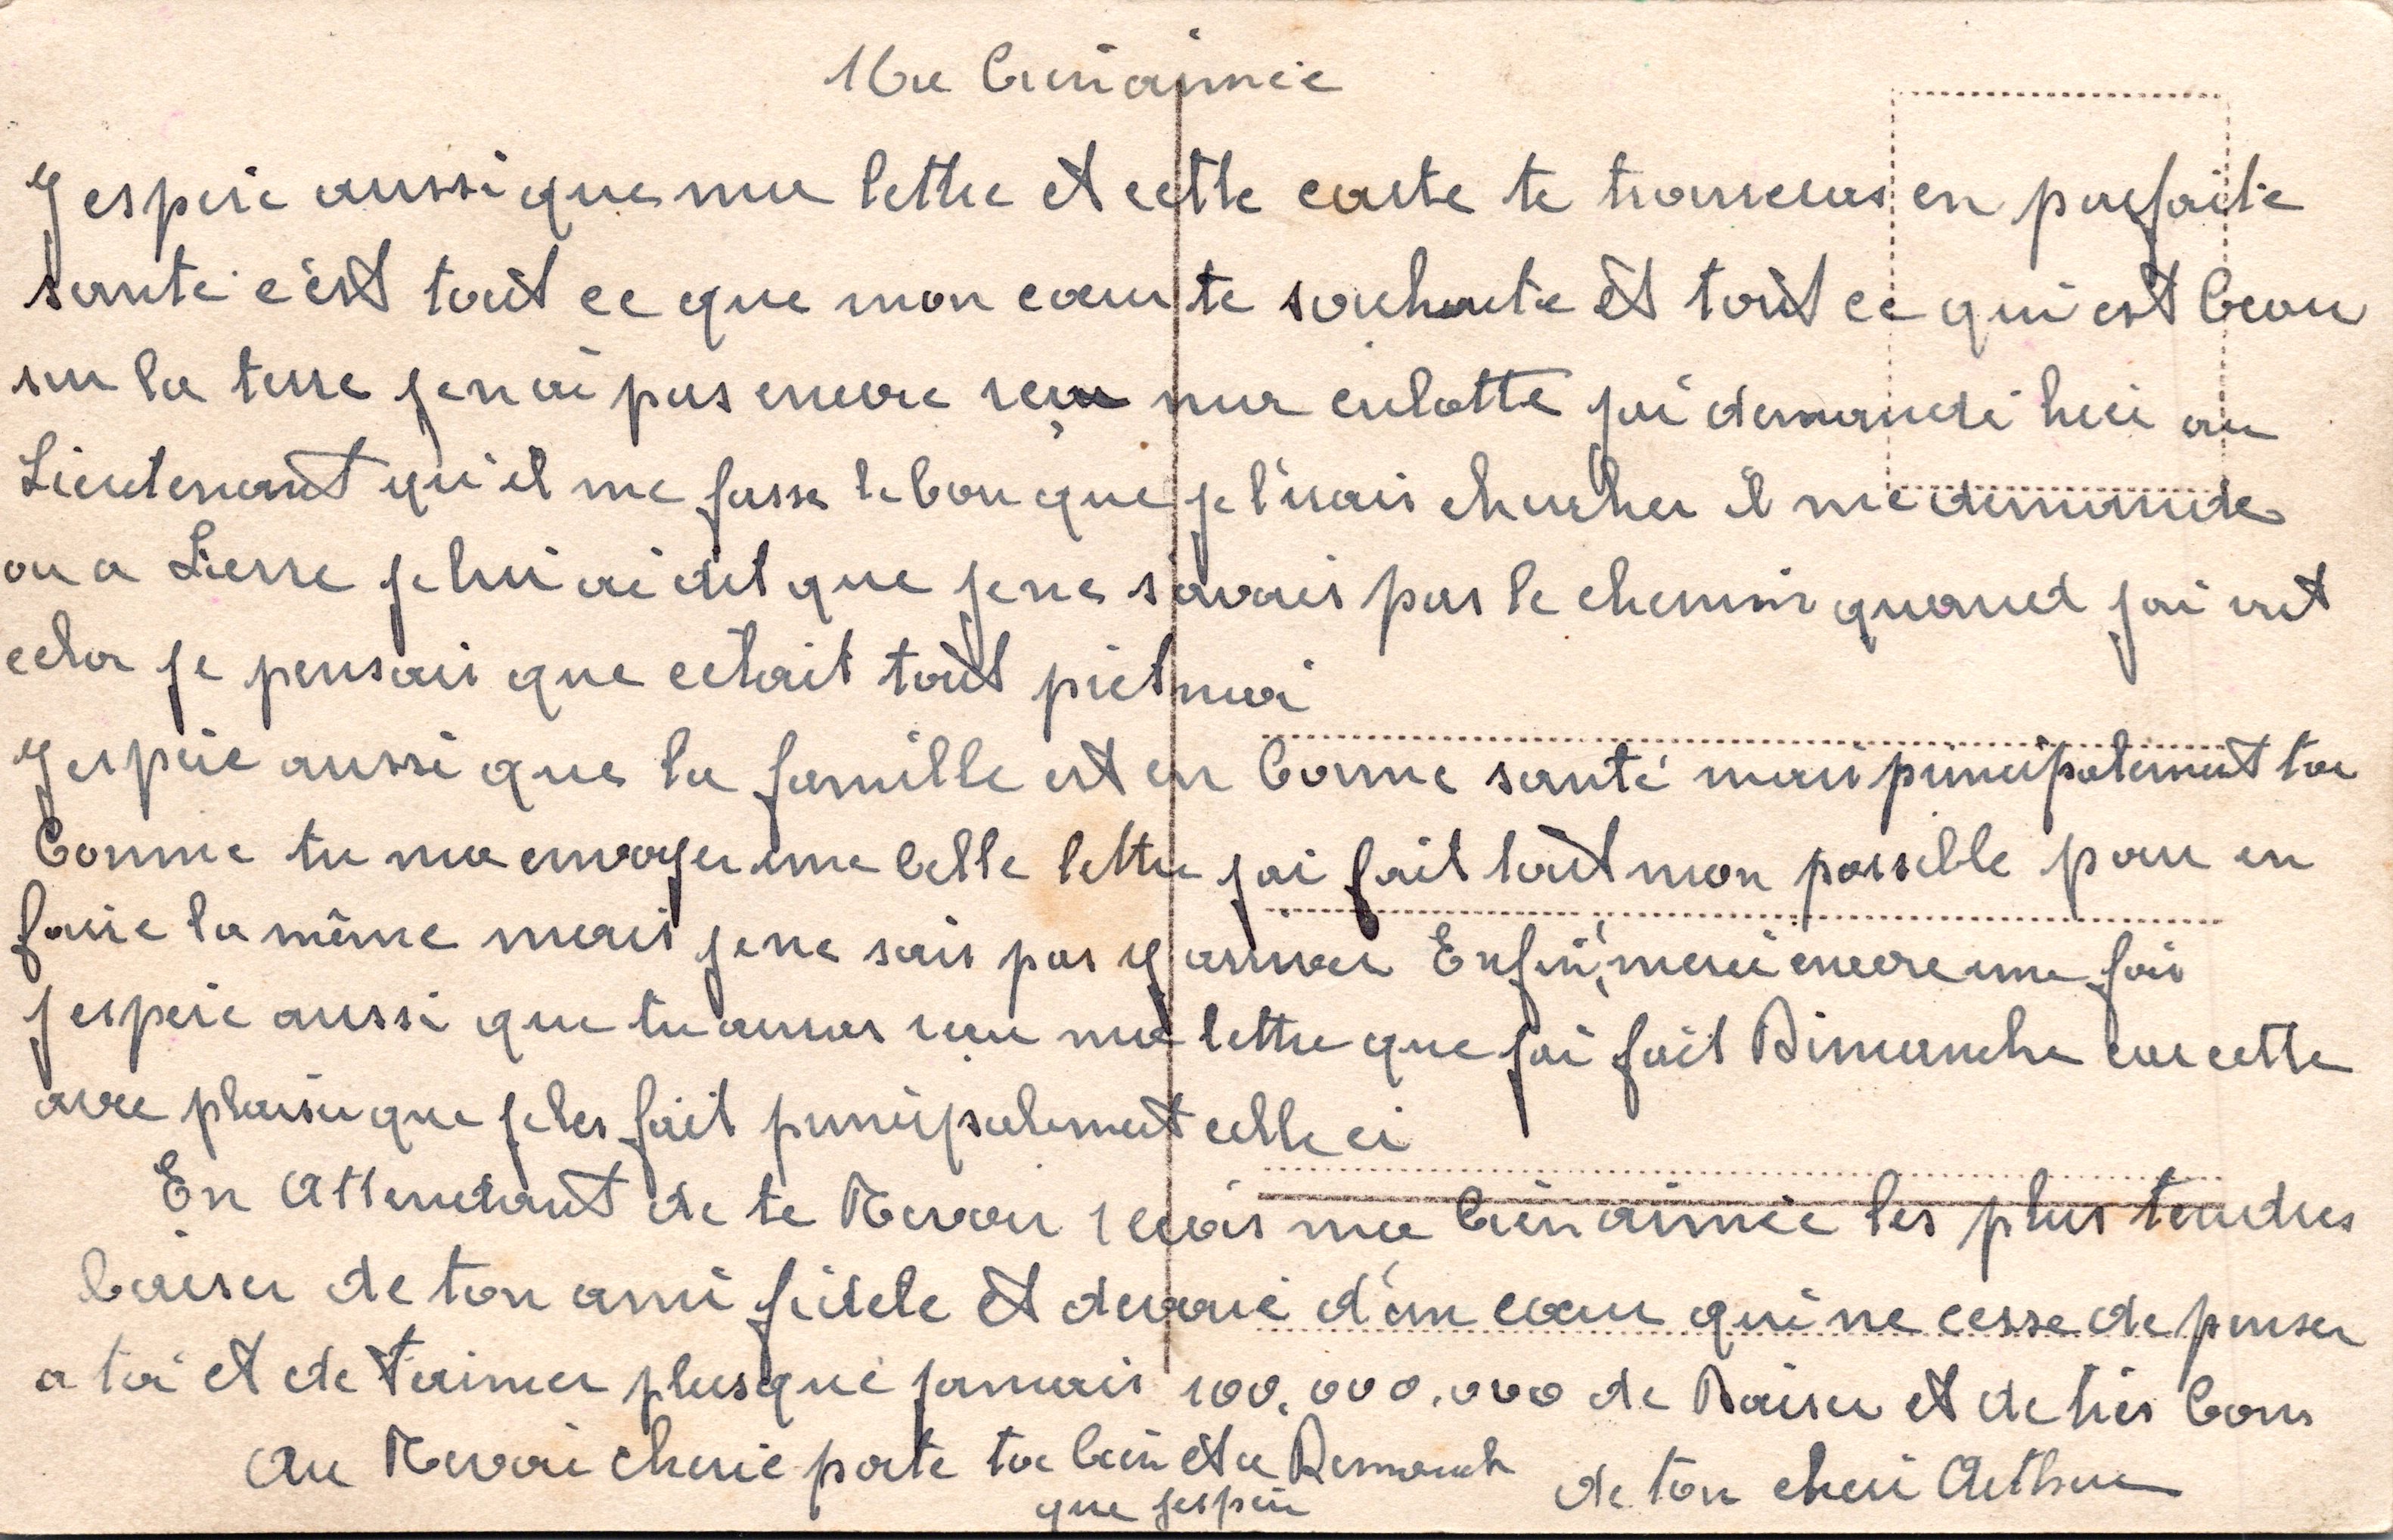 Ma bien aimée
J espere aussi que ma lettre et cette carte te trouveras en parfaite
santé c'est tout ce que mon cœur te souhaite et tout ce qui est beau
sur la terre je n ai pas encore reçu ma culotte j'ai demandé hier au
Lieutenant qu'il me fasse le bon que je l'irais chercher il me demande
ou a Lierre je lui ai dit que je ne savais pas le chemin quand j'ai vut
cela je pensais que cetait tout prêt moi
J espere aussi que la famille est en bonne santé mais principalement toi
Comme tu ma envoyer une belle lettre j'ai fait tout mon possible pour en
faire la même mais je ne sais pas y arriver Enfin, merci encore une fois
j espere aussi que tu auras reçu ma lettre que j'ai fait Dimanche car cette
avec plaisir que je les fait principalement celle ci
En Attendant de te Revoir reçois ma bien aimée les plus tendres
baiser de ton ami fidele et devoué d'un cœur qui ne cesse de penser
a toi et de t'aimer plus que jamais 100.000.000 de Baiser et de très bons
Au Revoir cherie porte toi bien et a Dimanch
que j'espere
de ton cheri Arthur